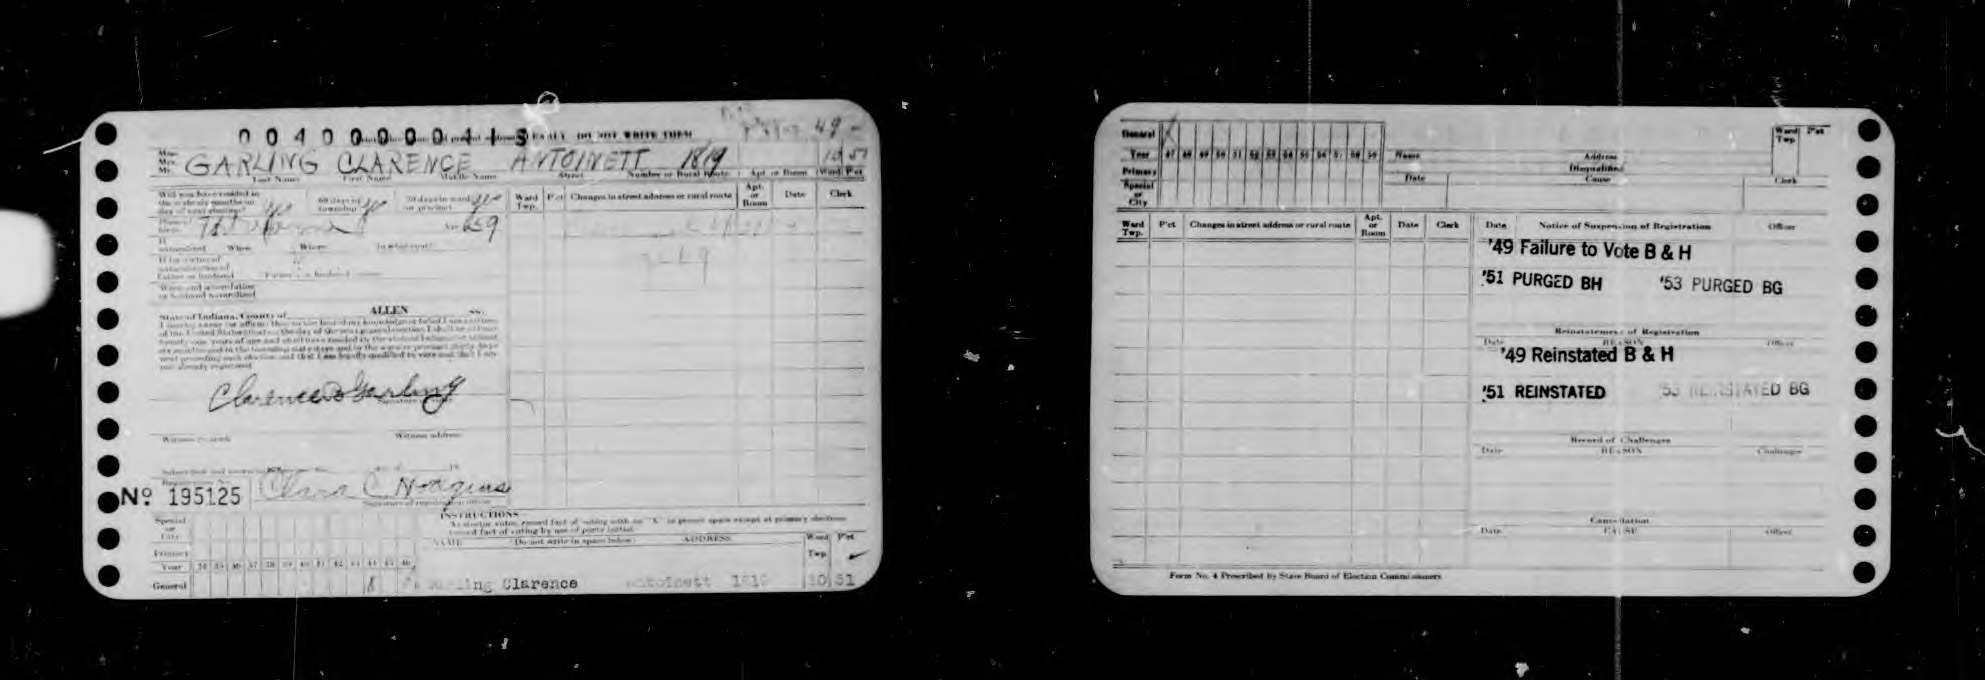 0 0 4 0 0 0 0 0 4 1 S DO NOT WRITE THEM 49 -
Mr.
Mrs. GARLING CLARENCE ANTOINETT 1819 10 51
Last Name First Name Middle Name Street Number or Rural Route Apt. or Room Ward P'ct
Will you have resided in
the state six months on
day of next election? 60 days in
township 30 days in ward
or precinct Ward
Twp. P'ct Changes in street address or rural route Apt.
or
Room Date Clerk
Ft Wayne Age 69
If
naturalized When Where In what court
If by virtue of
naturalization of
Father or husband Father's or husband
State of Indiana, County of ALLEN ss.
I hereby swear (or affirm) that to the best of my knowledge or belief I am a citizen
of the United States that on the day of the next general election I shall be at least
twenty-one years of age and shall have resided in the state of Indiana for at least
six months and in the township sixty days and in the ward or precinct thirty days
next preceding such election and that I am legally qualified to vote and that I am
not already registered.
Clarence Garling
Signature of
Witness to mark Witness address
Subscribed and sworn to
Registration No.
No. 195125 Clara C Hodgins
Signature of registration officer
INSTRUCTIONS
As elector votes, record fact of voting with an "X" in proper space except at primary elections
record fact of voting by use of party initial.
Special
or
City
NAME Do not write in space below ADDRESS Ward
Twp. P'ct
Primary
Year 34 35 36 37 38 39 40 41 42 43 44 45 46
General X Garling Clarence Antoinett 1819 10 51
General X
Year 47 48 49 50 51 52 53 54 55 56 57 58 59
Primary
Special
or
City
Name Address Ward
Twp. P'ct
Disqualified
Date Cause Clerk
Ward
Twp. P'ct Changes in street address or rural route Apt.
or
Room Date Clerk
Date Notice of Suspension of Registration Officer
'49 Failure to Vote B & H
'51 PURGED BH '53 PURGED BG
Reinstatement of Registration
Date REASON Officer
'49 Reinstated B & H
'51 REINSTATED '53 REINSTATED BG
Record of Challenges
Date REASON Challenger
Cancellation
Date CAUSE Officer
Form No. 4 Prescribed by State Board of Election Commissioners